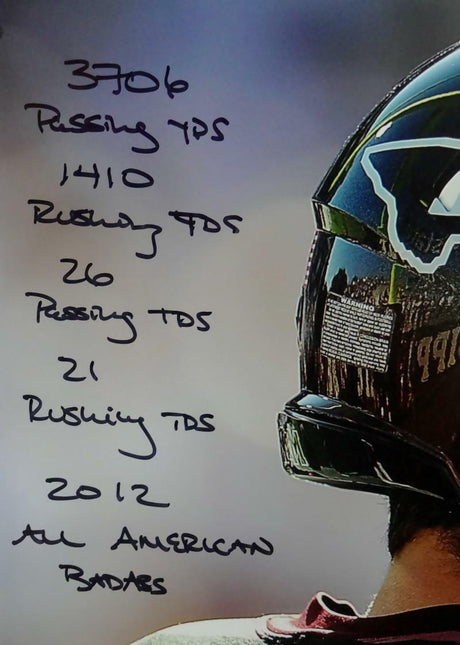 3706
Passing YDS
1410
Rushing YDS
26
Passing TDS
21
Rushing TDS
2012
ALL AMERICAN
BADASS
WARNING